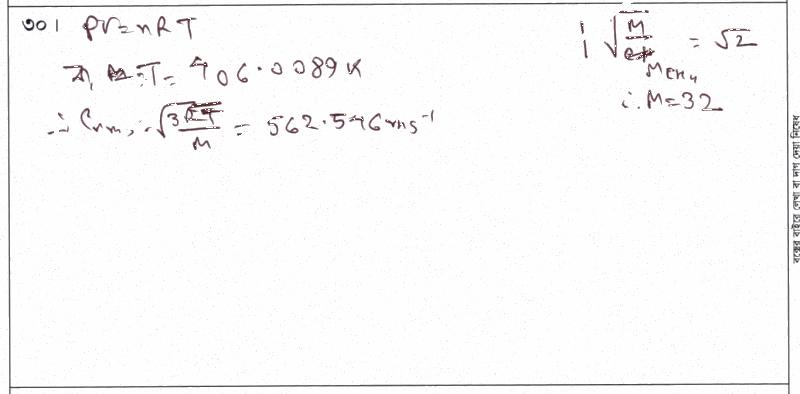 ৩০। PV=nRT
বা, T= 406.0089K
∴ Crms = √3RT/M = 562.546 ms⁻¹
√M/MCH₄ = √2
∴ M=32
বক্সের বাইরে লেখা বা দাগ দেয়া নিষেধ